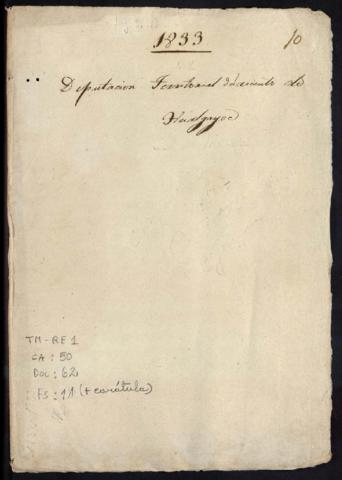 1833
10
Diputacion Territorial d asiento de
Hualgayoc
TM-RE 1
CA: 50
DOC: 62
Fs: 11 (+ carátula)